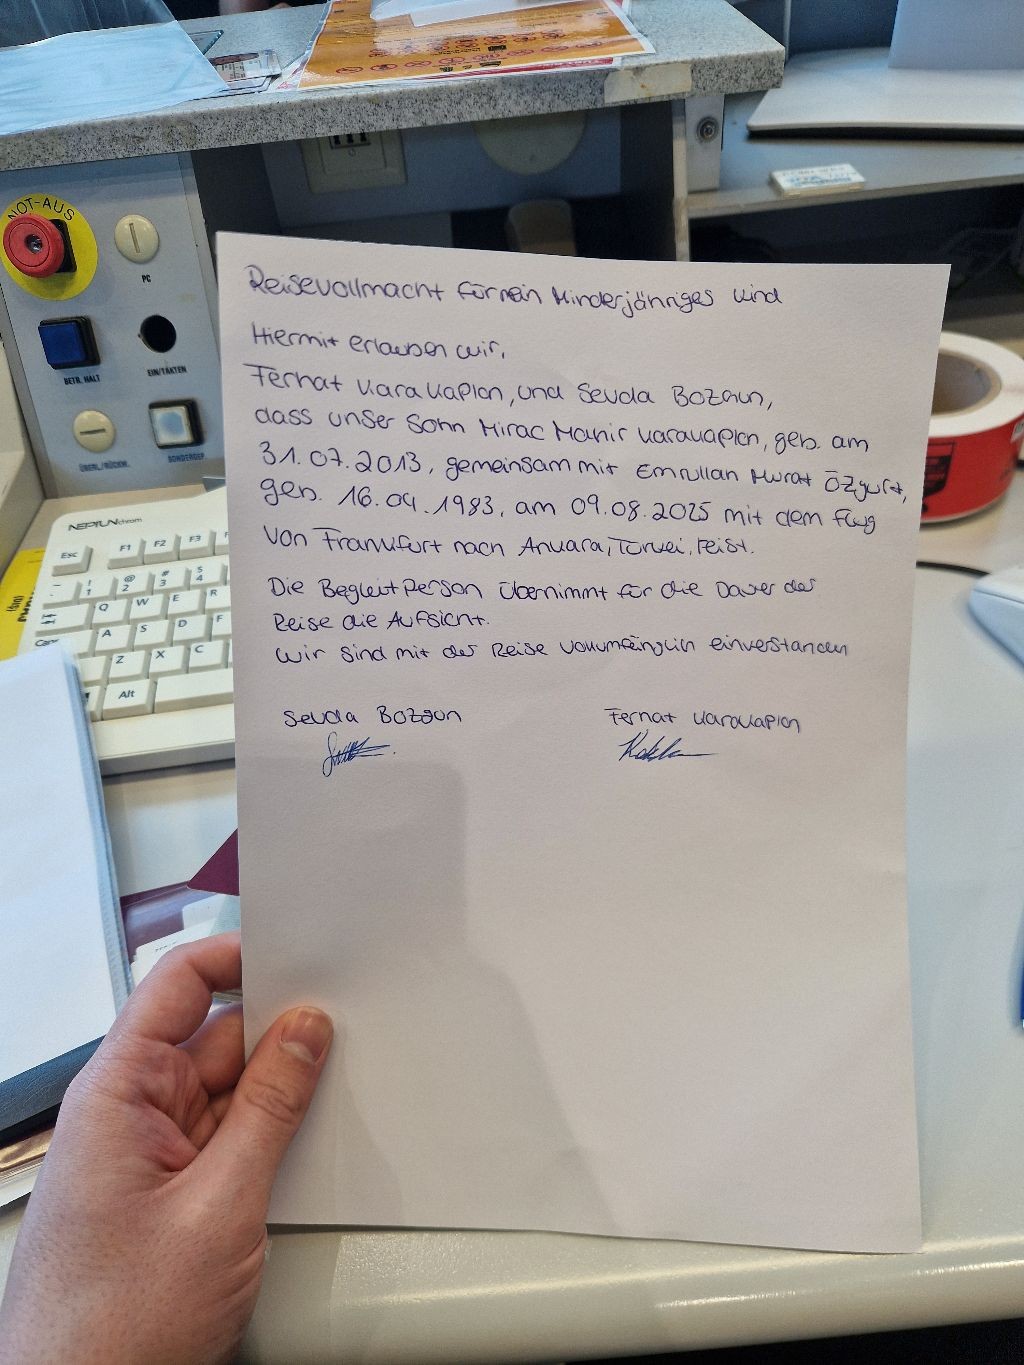 NOT-AUS
PC
BETR. HALT
EIN/TAKTEN
ÜBERL./RÜCKW.
SONDERGEP.
NEPTUN chrom
Esc
F1 F2 F3
! 1 @ 2 # 3 $ 4
Q W E R
A S D F
Z X C
Alt
Reisevollmacht für mein Minderjähriges Kind
Hiermit erlauben wir,
Ferhat Karakaplan, und Sevda Bozgun,
dass unser Sohn Mirac Mahir Karakaplan, geb. am
31.07.2013, gemeinsam mit Emrullah Murat Özgurt,
geb. 16.04.1983, am 09.08.2025 mit dem Flug
von Frankfurt nach Ankara, Türkei, reist.
Die Begleitperson übernimmt für die Dauer der
Reise die Aufsicht.
Wir sind mit der Reise vollumfänglich einverstanden
Sevda Bozgun Ferhat Karakaplan